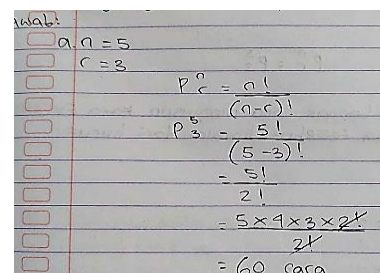 Jawab:
a. n = 5
r = 3
P n r = n! / (n-r)!
P 5 3 = 5! / (5-3)!
= 5! / 2!
= 5 x 4 x 3 x 2! / 2!
= 60 cara